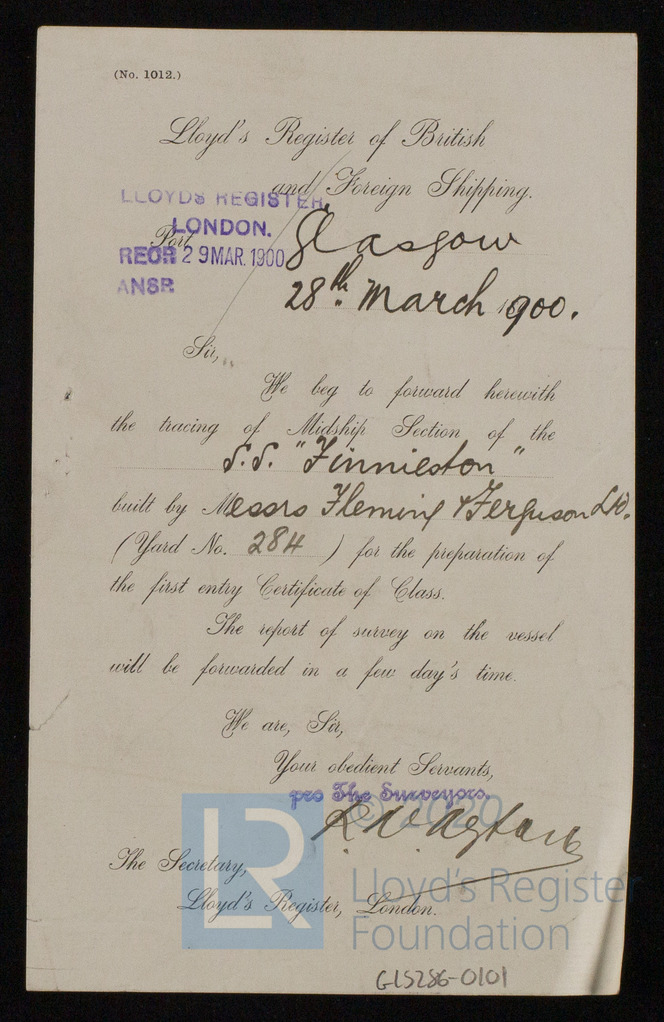 (No. 1012.)
Lloyd's Register of British
and Foreign Shipping.
LLOYDS REGISTER,
LONDON.
RECR 29 MAR. 1900
ANSR
Port
Glasgow
28th March 1900.
Sir,
We beg to forward herewith
the tracing of Midship Section of the
S.S. "Finnieston"
built by Messrs Fleming & Ferguson Ltd.
(Yard No. 284) for the preparation of
the first entry Certificate of Class.
The report of survey on the vessel
will be forwarded in a few day's time.
We are, Sir,
Your obedient Servants,
pro The Surveyors,
© 2020
The Secretary,
Lloyd's Register, London.
LR
Lloyd's Register
Foundation
GLS286-0101